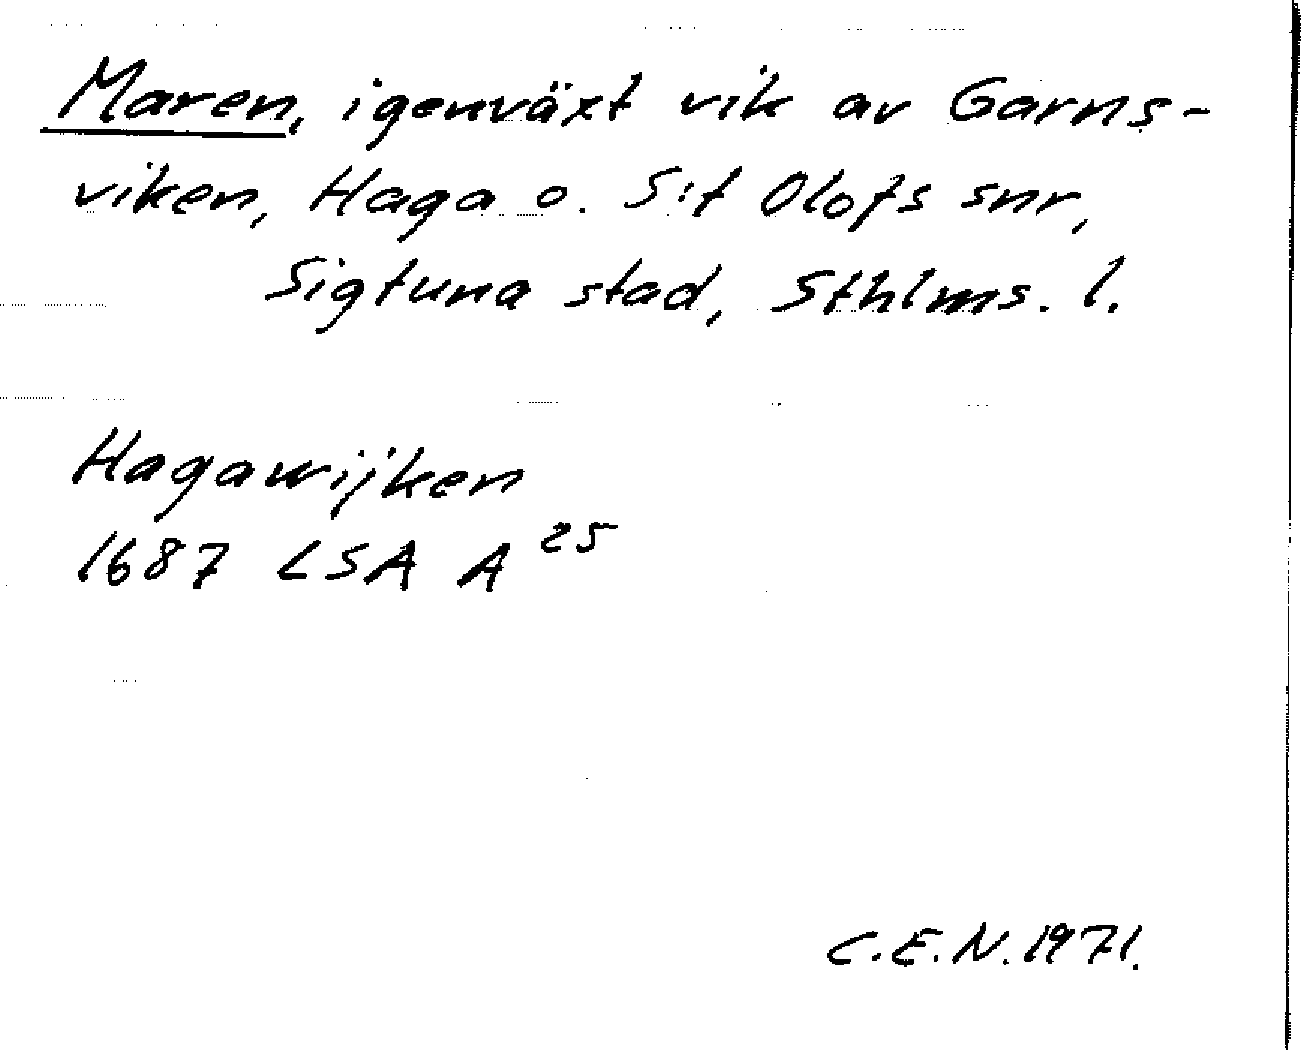 Maren, igenväxt vik av Garns-
viken, Haga o. S:t Olofs snr,
Sigtuna stad, Sthlms. l.
Hagawijken
1687 LSA A 25
C.E.N. 1971.